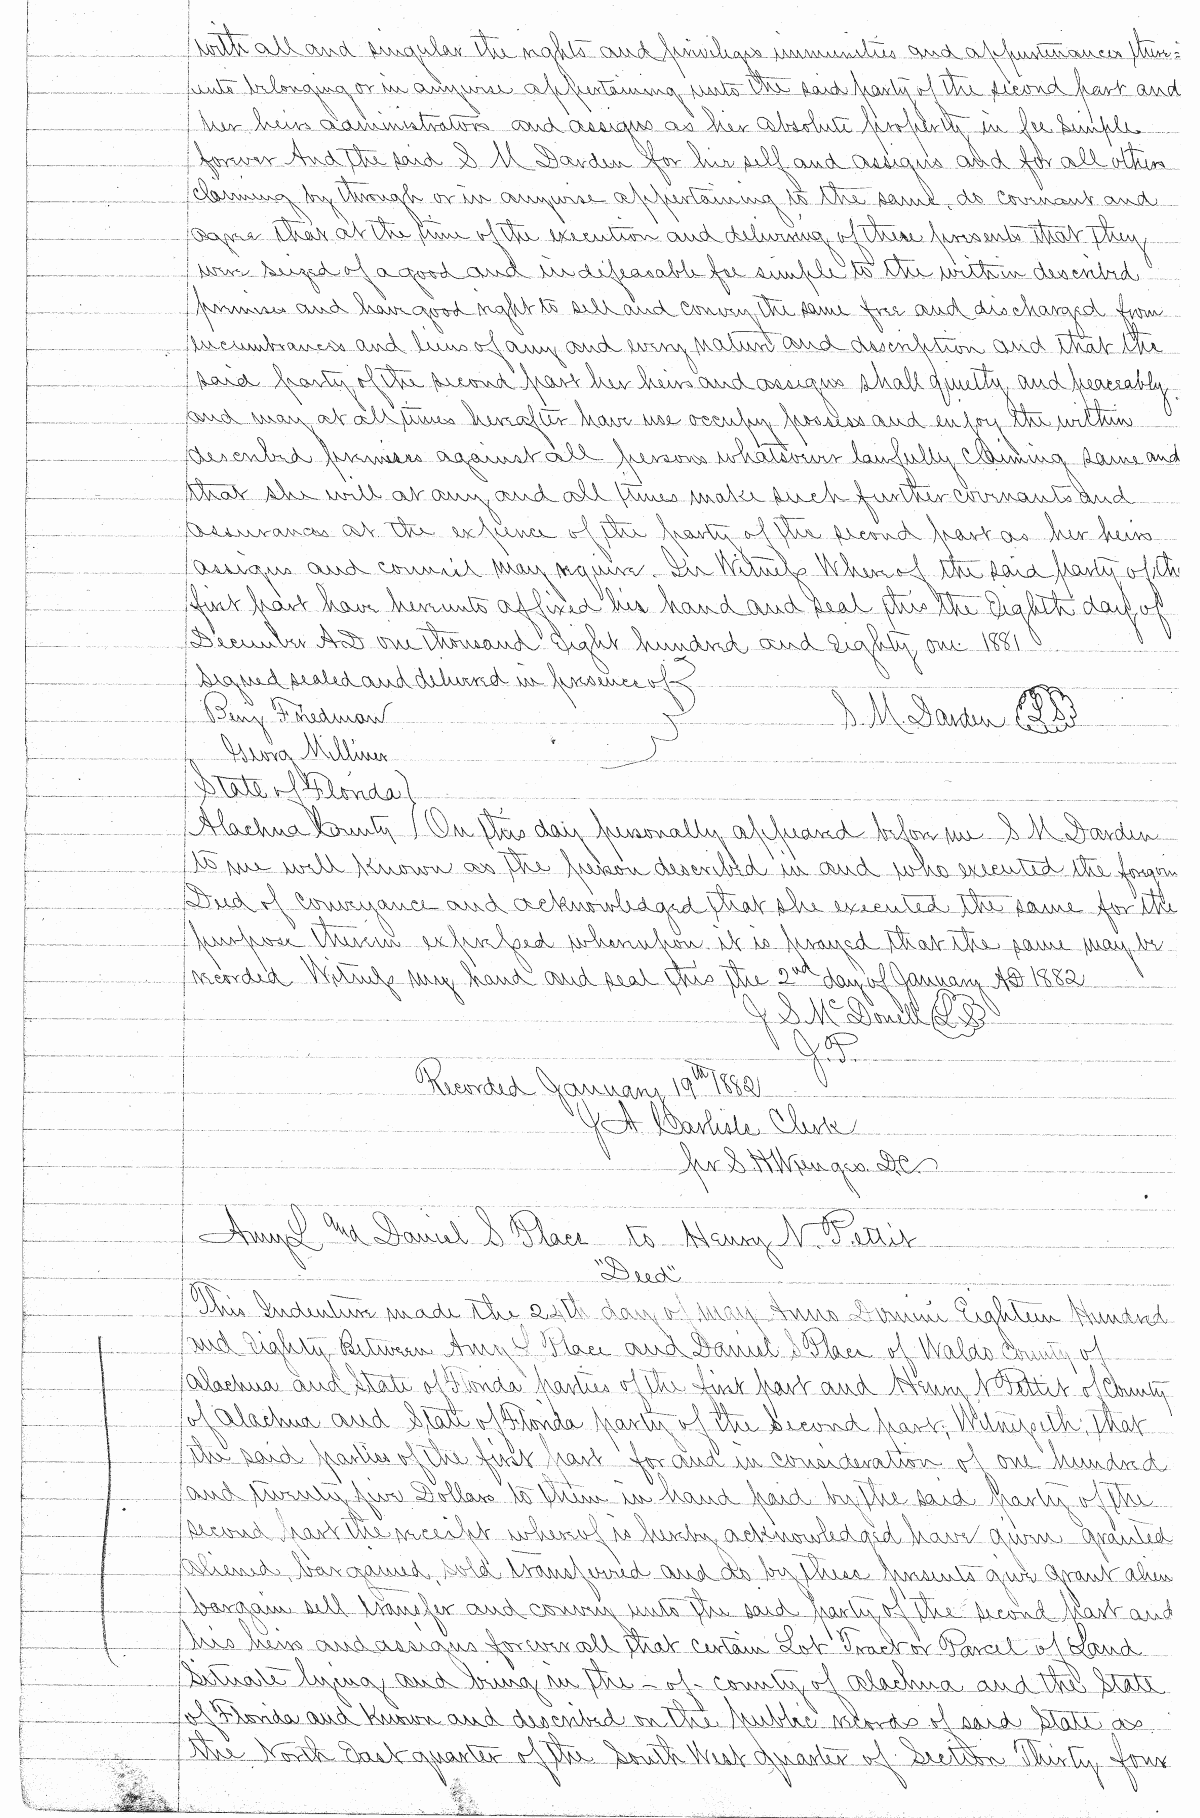 with all and singular the rights and privileges immunities and appurtenances there=
unto belonging or in anywise appertaining unto the said party of the second part and
her heirs administrators and assigns as her absolute property in fee simple
forever And the said S M Darden for his self and assigns and for all others
claiming by through or in anywise appertaining to the same, do covenant and
agree that at the time of the execution and delivering of these presents that they
were seized of a good and indefeasable fee simple to the within described
premises and have good right to sell and convey the same free and discharged from
incumbrances and liens of any and every nature and description and that the
said party of the second part her heirs and assigns shall quietly and peaceably
and may at all times hereafter have use occupy possess and enjoy the within
described premises against all persons whatsoever lawfully claiming same and
that she will at any and all times make such further covenants and
assurances at the expence of the party of the second part as her heirs
assigns and council may require. In Witness Where of the said party of the
first part have hereunto affixed his hand and seal this the Eighth day of
December AD one thousand Eight hundred and Eighty one 1881
Signed sealed and delivered in presence of
Benj Friedman
S. M. Darden LS
Georg Milliner
State of Florida
Alachua County On this day personally appeared before me S M Darden
to me well known as the person described in and who executed the foregoin
Deed of conveyance and acknowledged that she executed the same for the
purpose therein expressed whereupon it is prayed that the same may be
recorded Witness my hand and seal this the 2nd day of January AD 1882
J S McDonell LS
J.P.
Recorded January 19th 1882
J A Carlisle Clerk
pr S. H. D.C.
Amy L and Daniel S Place to Henry N. Pettit
"Deed"
This Indenture made the 25th day of May Anno Domini Eighteen Hundred
and Eighty Between Amy L Place and Daniel S Place of Waldo County of
Alachua and State of Florida parties of the first part and Henry N Pettit of County
of Alachua and State of Florida party of the Second part; Witnesseth, that
the said parties of the first part for and in consideration of one hundred
and twenty five Dollars to them in hand paid by the said party of the
second part the receipt whereof is hereby acknowledged have given granted
aliened, bargained, sold transferred and do by these presents give grant alien
bargain sell transfer and convey unto the said party of the second part and
his heirs and assigns forever all that certain Lot Tract or Parcel of Land
Situate lying and being in the - of - county of Alachua and the State
of Florida and known and described on the public records of said State as
the North East quarter of the South West quarter of Section Thirty four